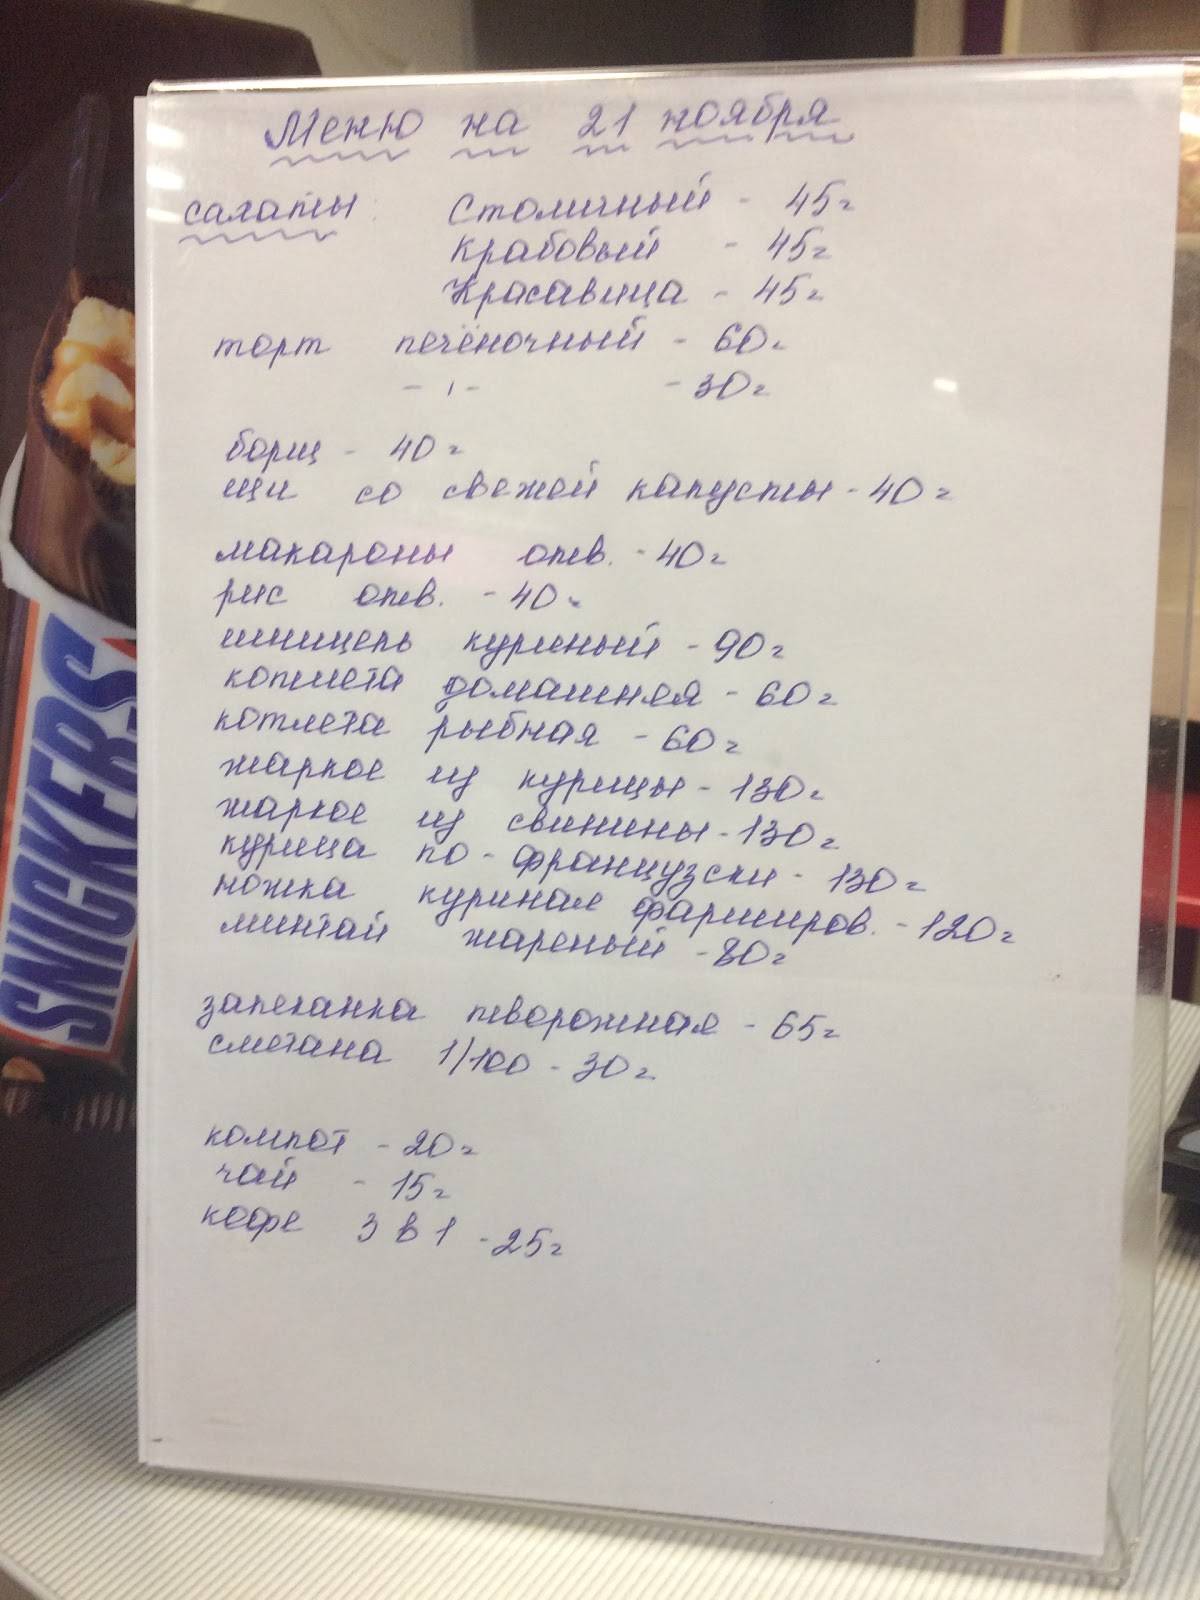 Меню на 21 ноября
салаты: Столичный - 45г
Крабовый - 45г
Красавица - 45г
торт печёночный - 60г
- ı - - 30г
борщ - 40г
щи со свежей капусты - 40г
макароны отв. - 40г
рис отв. - 40г
шницель куриный - 90г
котлета домашняя - 60г
котлета рыбная - 60г
жаркое из курицы - 130г
жаркое из свинины - 130г
курица по-французски - 130г
ножка куриная фарширов. - 120г
минтай жареный - 80г
запеканка творожная - 65г
сметана 1/100 - 30г
компот - 20г
чай - 15г
кофе 3 в 1 - 25г
SNICKERS